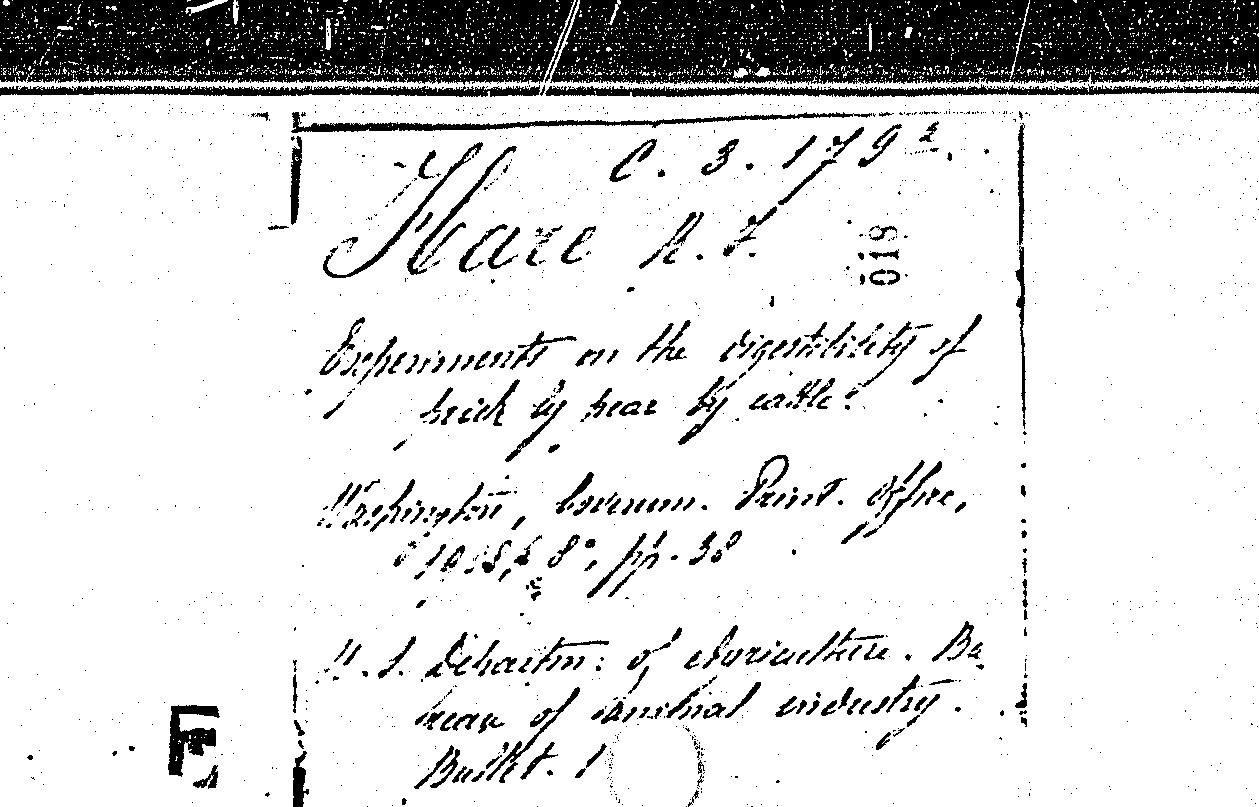 C. 3. 179 2.
Hare R. F.
019
Experiments on the digestibility of
prick ly pear by cattle.
Washington, Governm. Print. Office,
1908, 8°, pp. 38
U. S. Departm: of Agriculture. Bu
reau of animal industry.
Bullet. 1